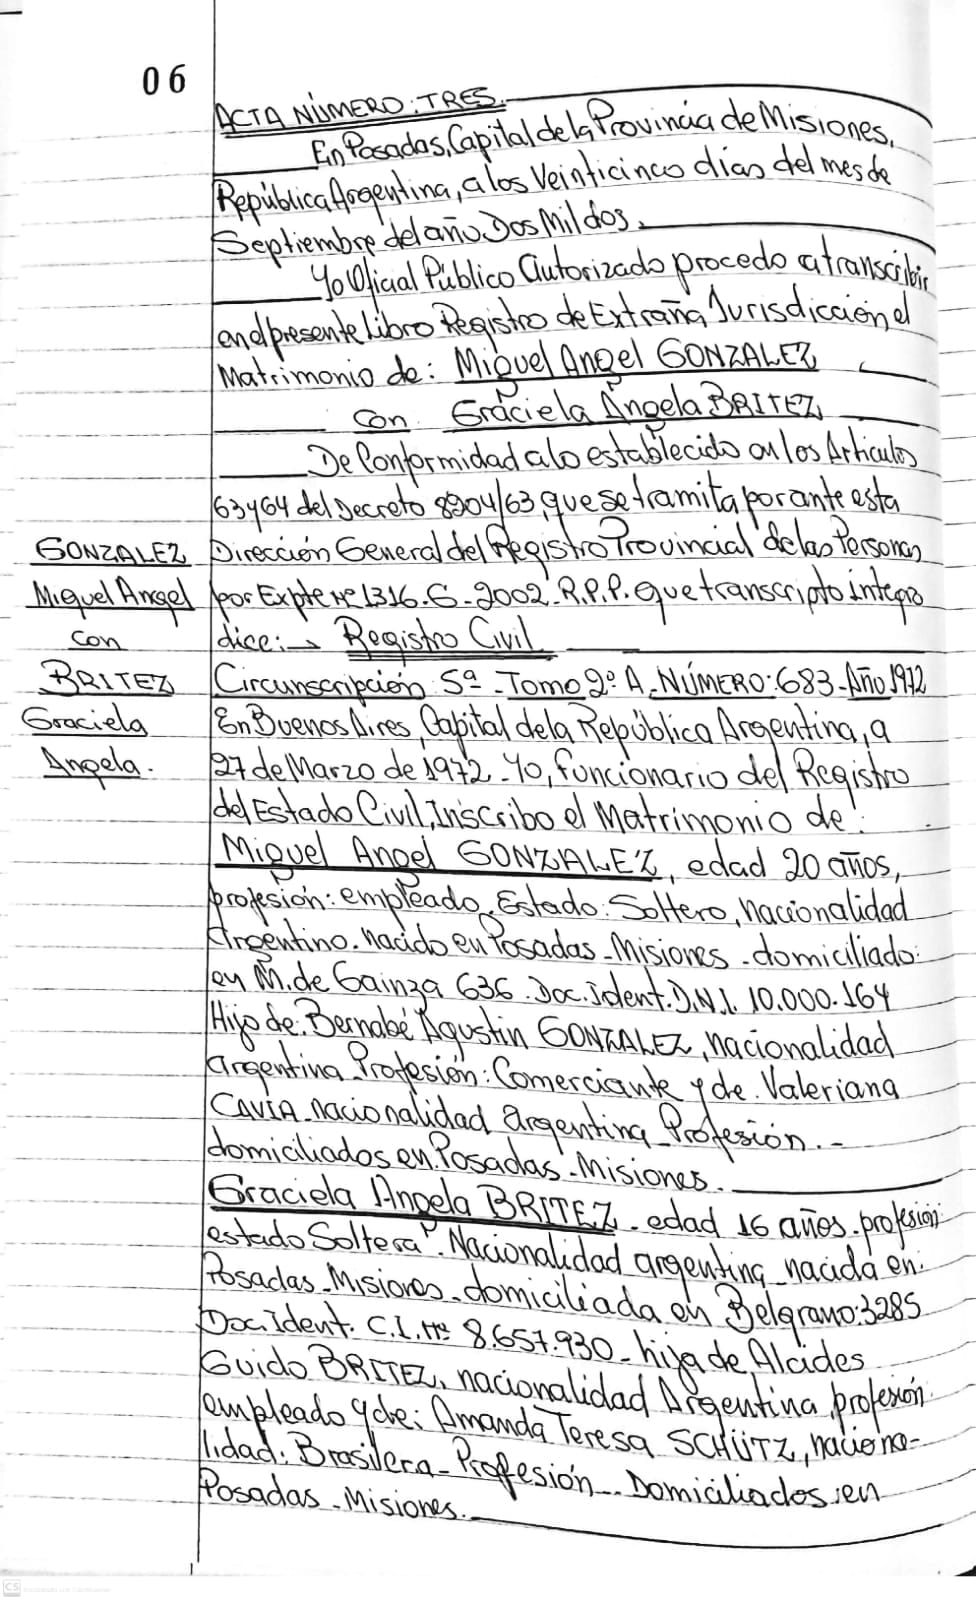 06
ACTA NÚMERO: TRES.
En Posadas, Capital de la Provincia de Misiones,
República Argentina, a los Veinticinco días del mes de
Septiembre del año Dos Mil dos.
Yo Oficial Público Autorizado procedo a transcribir
en el presente Libro Registro de Extraña Jurisdicción el
Matrimonio de: Miguel Angel GONZALEZ
con Graciela Angela BRITEZ
De Conformidad a lo establecido en los Artículos
63 y 64 del Decreto 8904/63, que se tramita por ante esta
Dirección General del Registro Provincial de las Personas
por Expte Nº 1316.G-2002-R.P.P. que transcripto íntegro
dice: Registro Civil
GONZALEZ
Miguel Angel
con
BRITEZ
Graciela
Angela.
Circunscripción 5ª-Tomo 2º A-NÚMERO: 683-Año 1972
En Buenos Aires, Capital de la República Argentina, a
27 de Marzo de 1972-Yo, funcionario del Registro
del Estado Civil, Inscribo el Matrimonio de:
Miguel Angel GONZALEZ, edad 20 años,
profesión: empleado, Estado: Soltero, nacionalidad
Argentino. nacido en Posadas-Misiones-domiciliado:
en M. de Gainza 636. Doc. Ident. D.N.I. 10.000.164
Hijo de: Bernabé Agustin GONZALEZ, nacionalidad
argentina Profesión: Comerciante y de Valeriana
CAVIA nacionalidad argentina Profesión.-
domiciliados en Posadas-Misiones.
Graciela Angela BRITEZ-edad 16 años. profesión
estado Soltera. Nacionalidad argentina nacida en:
Posadas-Misiones-domiciliada en Belgrano: 3285
Doc. Ident. C.I. Nº 8.657.930-hija de Alcides
Guido BRITEZ, nacionalidad Argentina, profesión
empleado y de: Amanda Teresa SCHÜTZ, naciona-
lidad: Brasilera-Profesión-Domiciliados en
Posadas-Misiones.